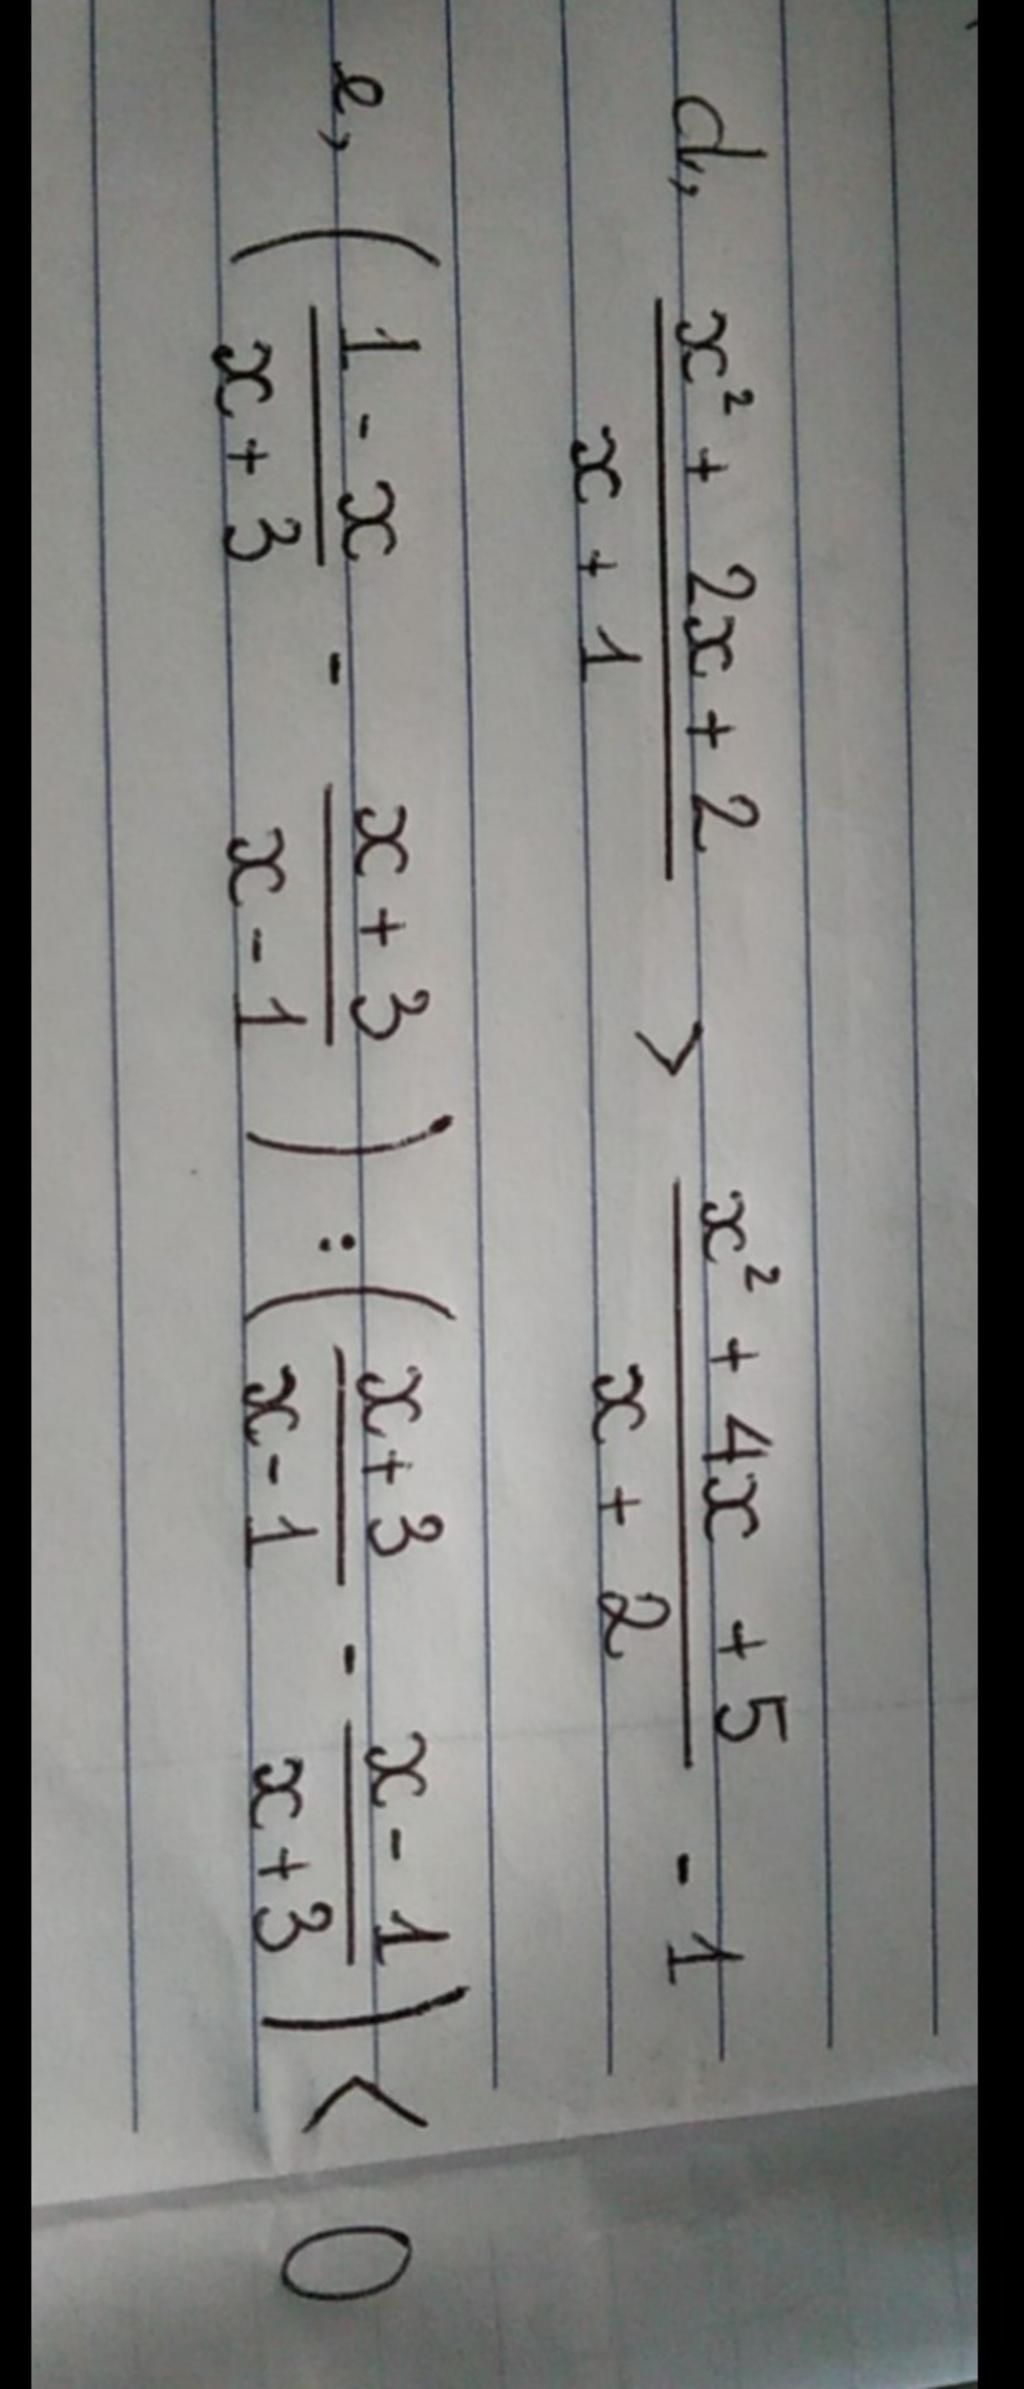 d, (x² + 2x + 2)/(x + 1) > (x² + 4x + 5)/(x + 2) - 1
e, ((1 - x)/(x + 3) - (x + 3)/(x - 1)) : ((x + 3)/(x - 1) - (x - 1)/(x + 3)) < 0